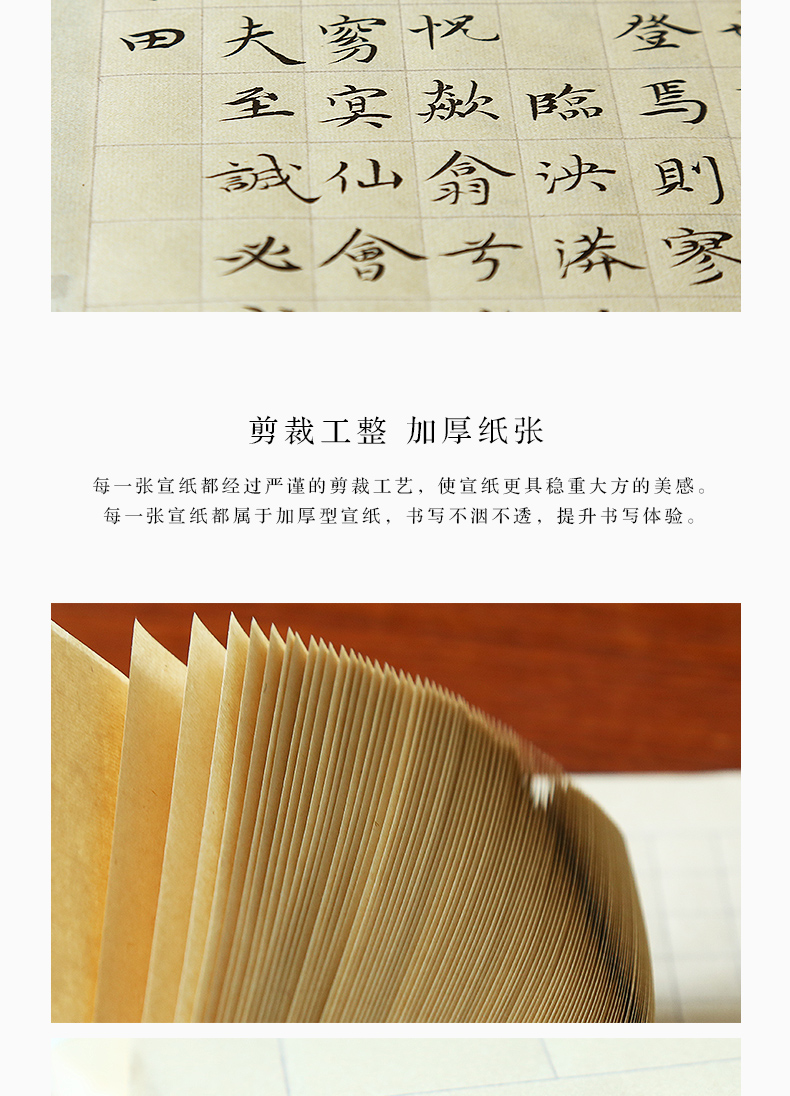 登焉則寥
臨泱漭
怳歘翕兮
窈冥仙會
夫至誠必
田
剪裁工整 加厚纸张
每一张宣纸都经过严谨的剪裁工艺，使宣纸更具稳重大方的美感。
每一张宣纸都属于加厚型宣纸，书写不洇不透，提升书写体验。